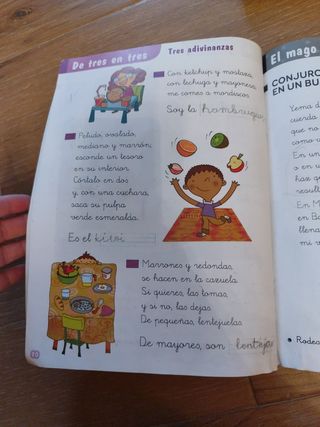 De tres en tres
Tres adivinanzas
Con ketchup y mostaza,
con lechuga y mayonesa,
me comes a mordiscos.
Soy la hambrugue
Peludo, ovalado,
mediano y marrón,
esconde un tesoro
en su interior.
Córtalo en dos
y, con una cuchara,
saca su pulpa
verde esmeralda.
Es el kiwi
Marrones y redondas,
se hacen en la cazuela.
Si quieres, las tomas,
y si no, las dejas.
De pequeñas, lentejuelas.
De mayores, son lentejas
El mago
CONJURO
EN UN BU
Yema d
cuerda
que no
como u
o en u
has q
resu
En M
en Ba
llena
mi v
• Rodea